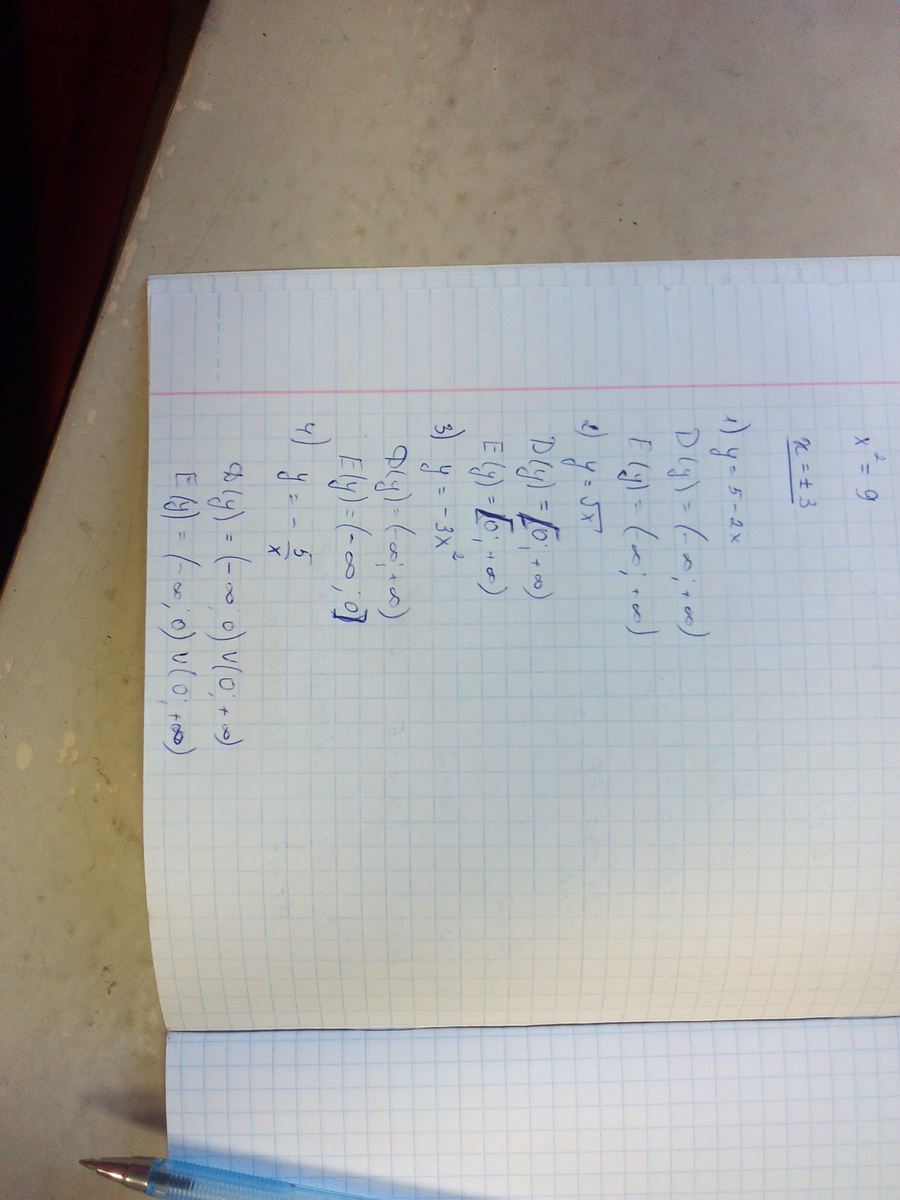 x² = 9
x = ± 3
1) y = 5 - 2x
D(y) = (-∞; +∞)
E(y) = (-∞; +∞)
2) y = √x
D(y) = [0; +∞)
E(y) = [0; +∞)
3) y = -3x²
D(y) = (-∞; +∞)
E(y) = (-∞; 0]
4) y = - 5/x
D(y) = (-∞; 0) ∪ (0; +∞)
E(y) = (-∞; 0) ∪ (0; +∞)